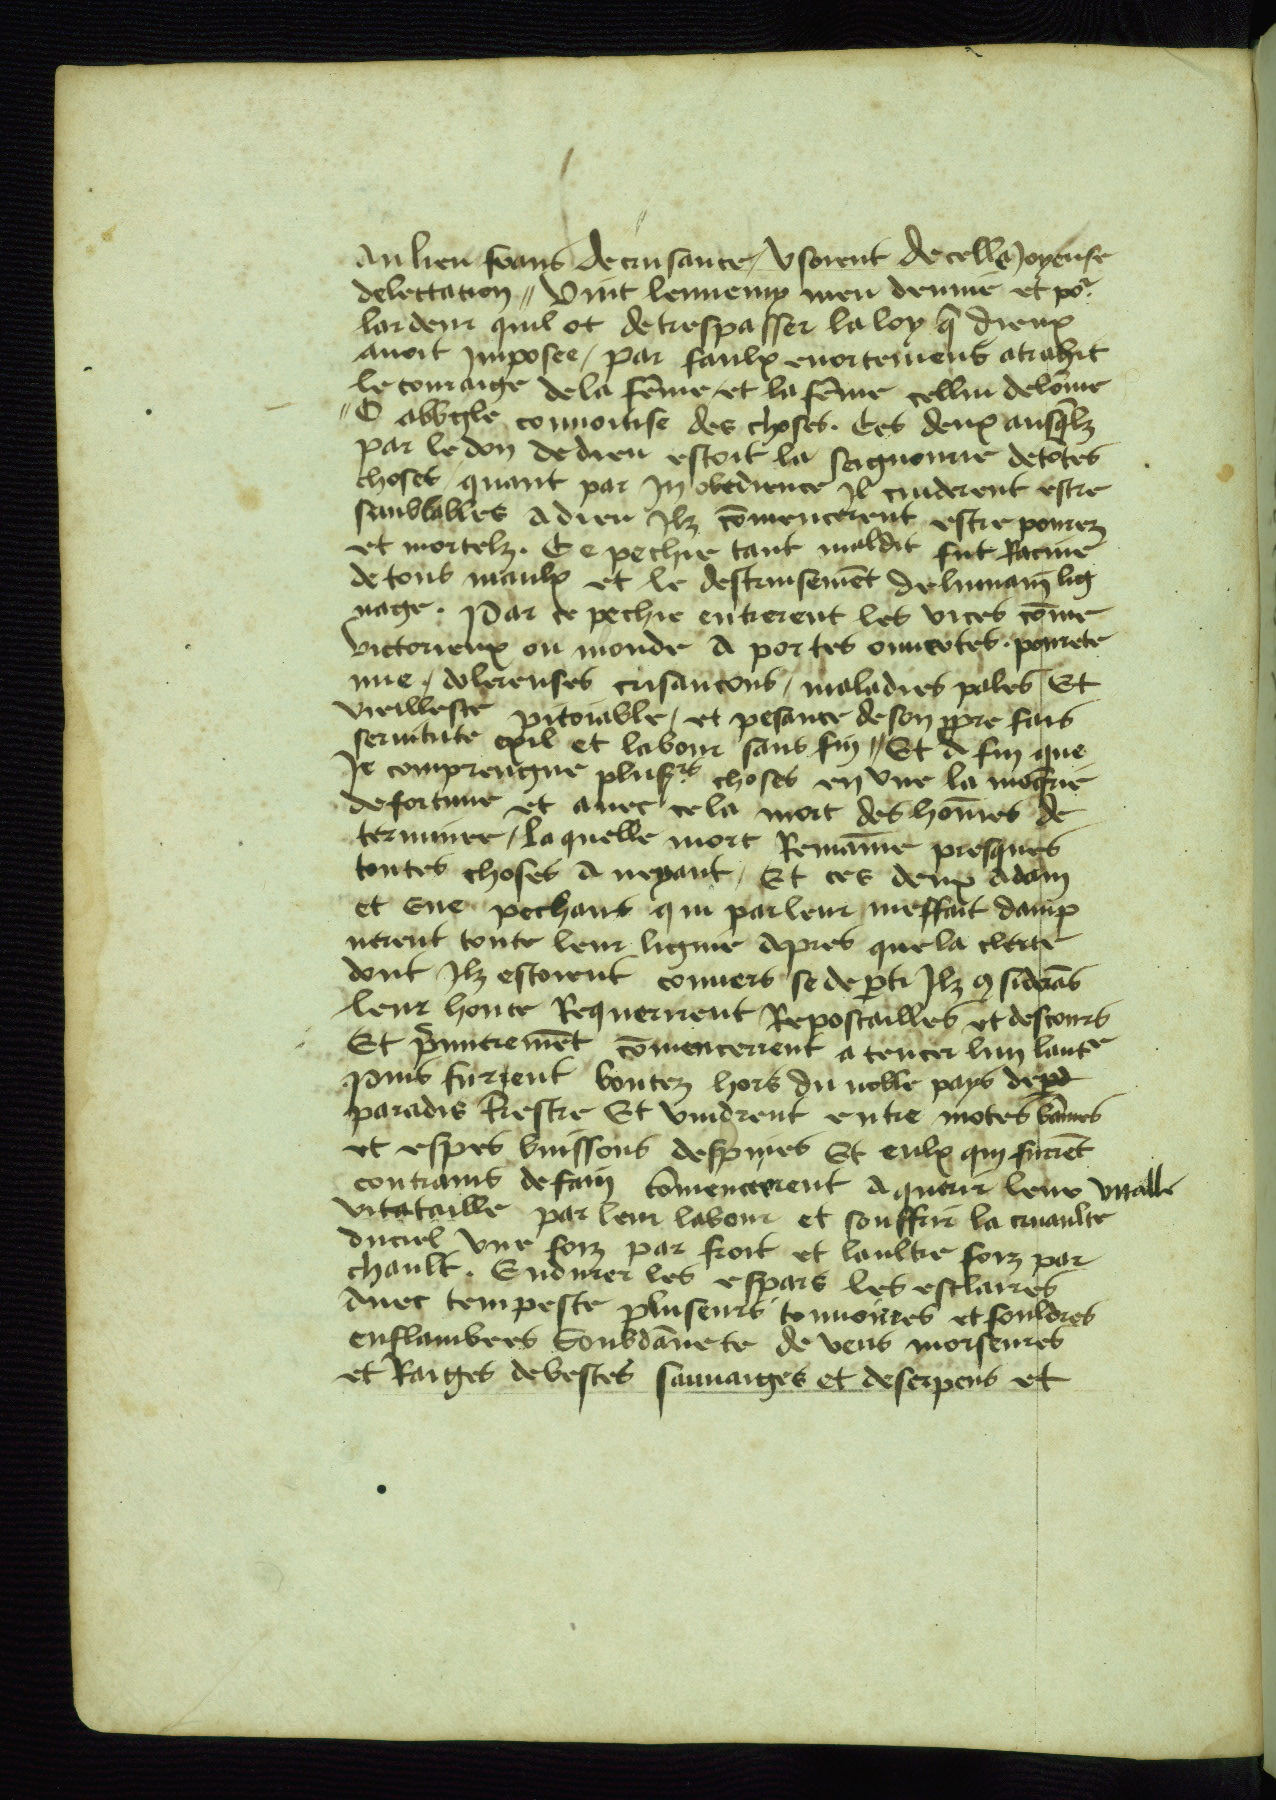 au lieu frans de cusance / Usoient de celle Joyeuse
delectation // Vint lennemy meu denuie et por
lardeur quil ot de trespasser la loy q̃ dieux
auoit Imposee / par faulx enortemens atrahit
le couraige de la fẽme / et la fẽme celluy delõme
// O abugle conuoitise des choses . Ces deux ausqlz
par le don de dieu estoit la seignourie de totes
choses / quant par In obedience Il cuiderent estre
samblables a dieu Ilz cõmencerent estre poures
et mortelz . Ce pechie tant maldit fut Racine
de tous maulx et le destruisemẽt delumain lig
nage . Par ce pechie entrerent les vices cõme
victorieux ou monde a portes ouuertes . pourete
nue / dolereuses cusancons / maladies pales Et
vieillesce pitoiable / et pesance de son ppre fais
seruitute exil et labour sans fin // Et a fin que
Je comprengne plusrs choses en vne la moqrie
de fortune et auec ce la mort des hom̃es de
terminee / la quelle mort Ramaine presques
toutes choses a neyant / Et ces deux adam
et Eue pechans qui par leur meffait damp
nerent toute leur lignie apres que la clerte
dont Ilz estoient couuers se departi Ilz 9siderãs
leur honte Requerirent Repostailles et destours
Et p̃mieremẽt cõmencerent a tencer lun lautre
Puis furent boutez hors du noble pays de pd
paradis trestre Et vindrent entre motes
et espes buissons despines Et eulx qui furẽt
contrains de fain cõmencerent a querir leur vitalle
vitataille par leur labour et souffrir la cruaulte
du ciel vne foiz par froit et laultre foiz par
chault . Endurer les espars les esclaires
auec tempeste pluseurs tonnoirres et fouldres
enflambees Soubdainete de vens morseures
et Raiges de bestes sauuaiges et de serpens et